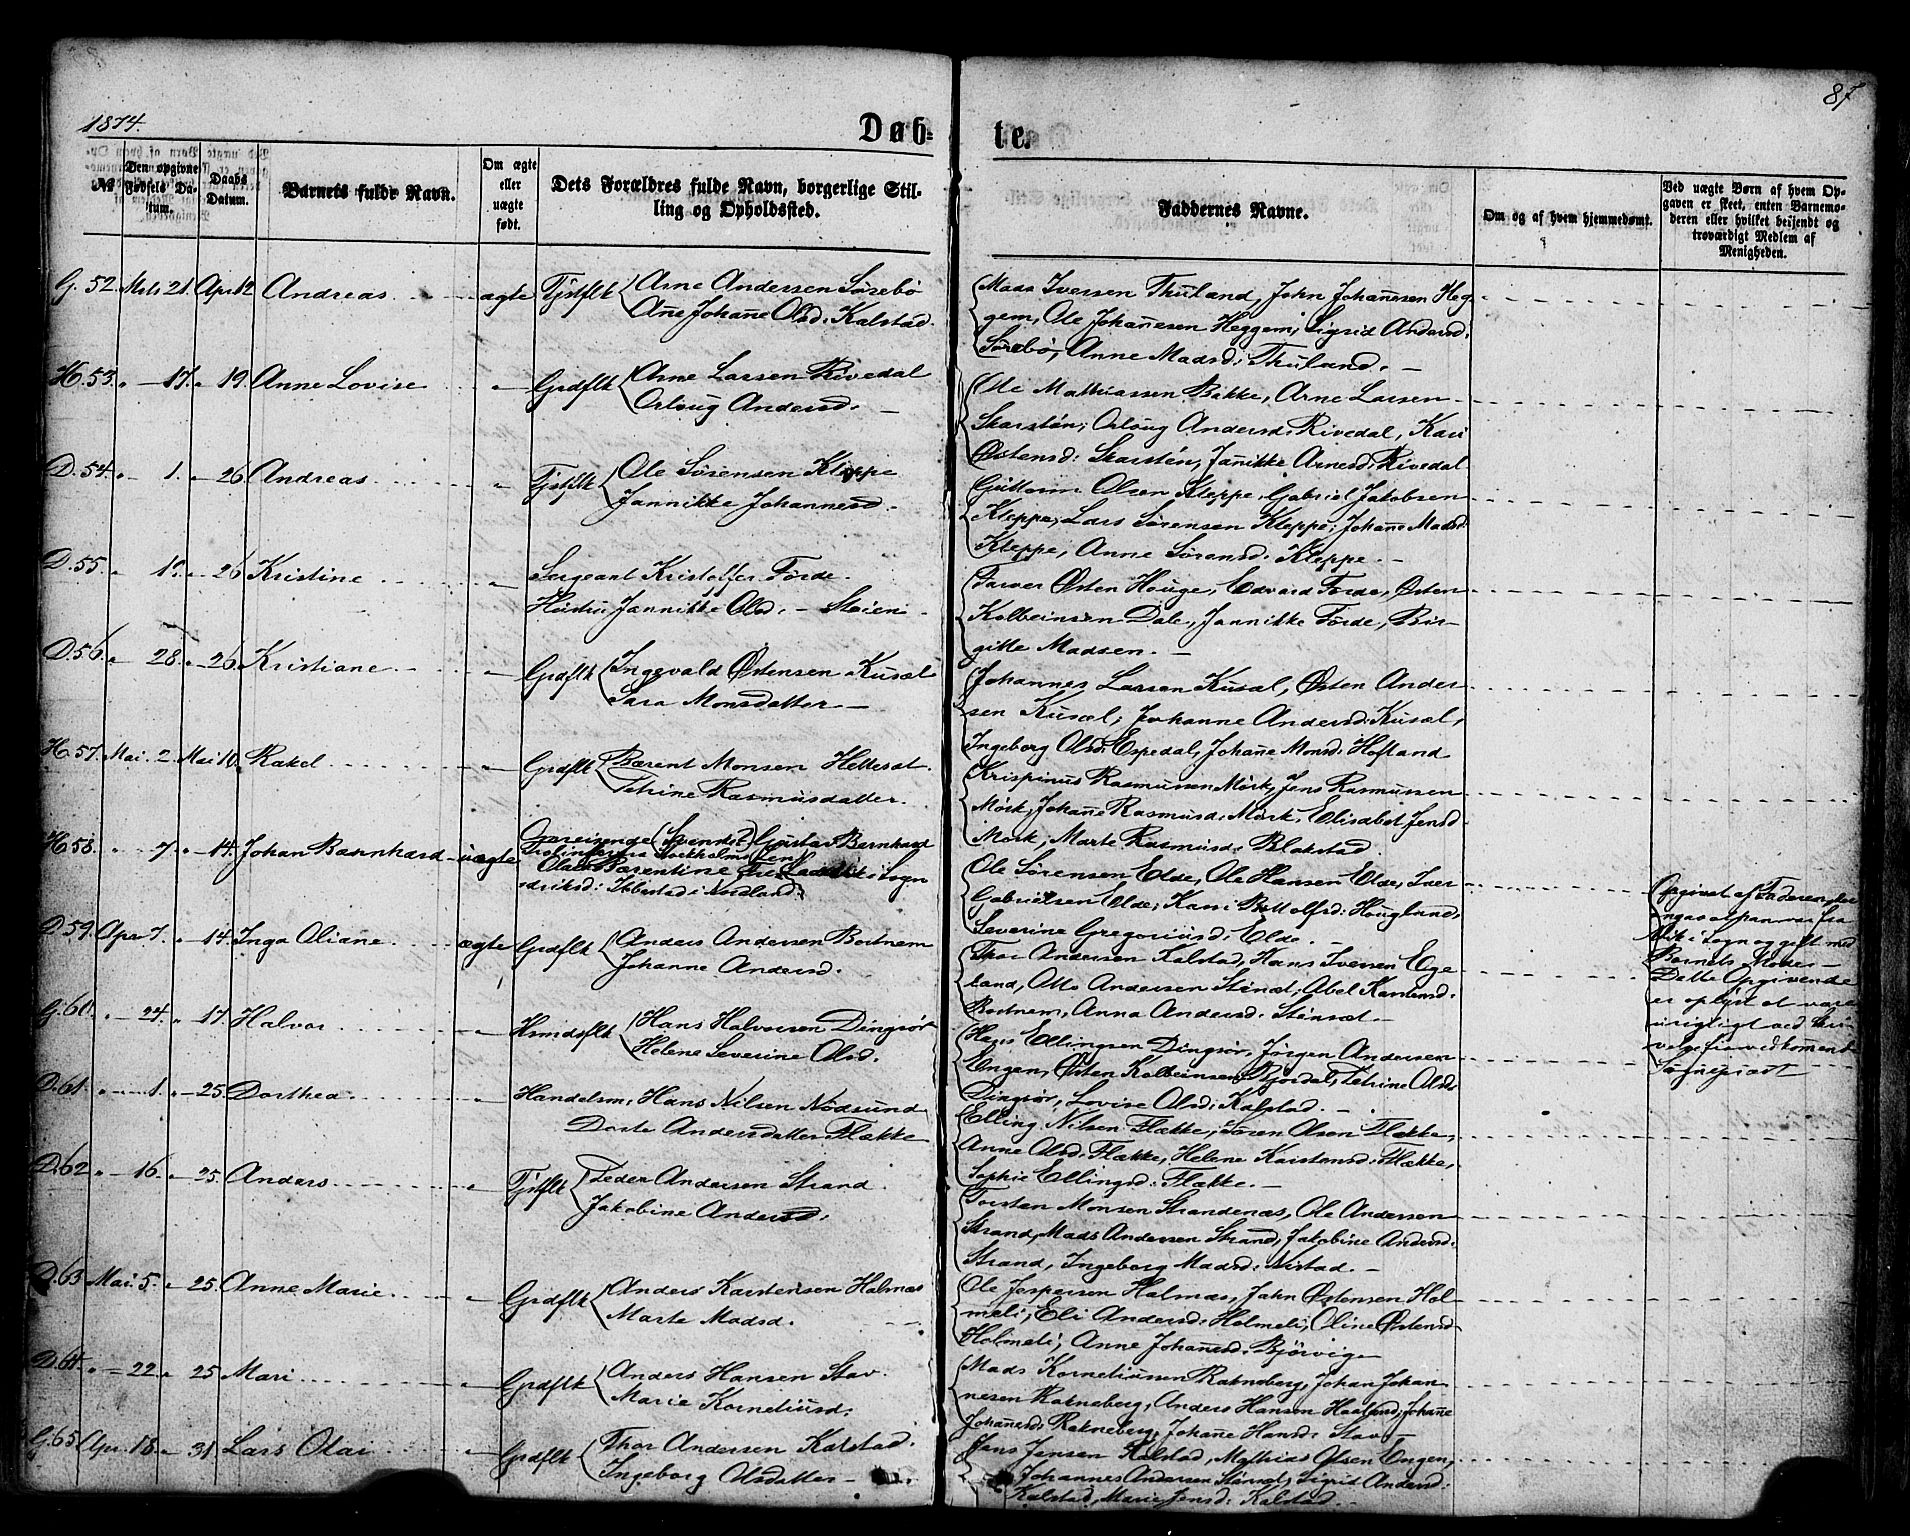 1874.
Døb-
te.
87
№
Den opgivne Fødsels Datum.
Daabs Datum.
Barnets fulde Navn.
Om ægte eller uægte født.
Dets Forældres fulde Navn, borgerlige Stilling og Opholdssted.
Faddernes Navne.
Om og af hvem hjemmedøbt.
Ved uægte Børn af hvem Opgaven er skeet, enten Barnemoderen eller hvilket beijendt og troværdigt Medlem af Menigheden.
G. 52. Mrts 21. Apr. 12 Andreas ægte Tjstflk Arne Andersen Sørebø
Ane Johane Olsd: Kalstad.
Mads Iversen Thuland, John Johanesen Heg-
gem, Ole Johanesen Heggem, Sigrid Andersd:
Sørebø, Anne Madsd: Thuland. —
H. 53. " — 17. " 19. Anne Lovise " Grdflk Arne Larsen Rivedal
Orloug Andersd. —
Ole Mathiassen Bakke, Arne Larsen
Skarstén, Orloug Andersd: Rivedal, Kari
Østensd: Skarstén, Janikke Arnesd: Rivedal
D. 54. " — 1. " — 26 Andreas " Tjstflk Ole Sørensen Kleppe
Jannikke Johannesd.
Guttorm Olsen Kleppe, Gabriel Jakobsen
Kleppe, Lars Sørensen Kleppe, Johane Madsd:
Kleppe, Anne Sørensd: Kleppe. —
D. 55. " 26 Kristine " Sergeant Kristoffer Førde.
Hustru Jannikke Olsd. —
Østen Houge, Edvard Førde, Østen
Kolbeinsen Dale, Jannikke Førde, Bir-
gitte Madsen. —
D. 56. " 28. " — 26 Kristiane " Grdflk Ingevald Østensen Kusæl
Sara Monsdatter —
Johannes Larsen Kusæl, Østen Ander-
sen Kusæl, Johanne Andersd: Kusæl,
Ingeborg Olsd: Espedal, Johane Monsd: Hofland
H. 57. Mai. 2. Mai 10. Rakel " Grdflk Bærent Monsen Hellesæt.
Petrine Rasmusdatter.
Krispinus Rasmussen Mørk, Jens Rasmussen
Mørk, Johane Rasmusd: Mørk, Elisabet Jensd:
Mørk, Marte Rasmusd: Blakstad.
H. 58. " " 7. " — 14. Johan Barnhard uægte Omreisende (Svensk?) Gustav Barnhard
Ole Sørensen Elde, Ole Hansen Elde, Iver
Gabrielsen Elde, Kari Botolfsd: Hougland,
Severine Gregoriusd: Elde. —
Opgivet af Faderen,
Vik i Sogn og gift med
Barnets Moder —
Dette Opgivende
er oplyst at være
urigtigt ved Skri-
velse fra vedkommende
Sognepræst
D. 59. Apr. 7. " — 14. Inga Oliane ægte Grdflk Anders Andersen Bortnem
Johanne Andersd.
Thor Andersen Kalstad, Hans Iversen Eige-
land, Otto Andersen Stensæt, Abel Karstensd:
Bortnem, Anna Andersd: Stensæt. —
G. 60. " — 24. " 17. Halvor " Hsmdsflk Hans Halvorsen Dingsør
Helene Severine Olsd.
Hans Ellingsen Dingsør, Jørgen Andersen
Engen, Østen Kolbeinsen Fjordal, Petrine Olsd:
Dingsør, Lovise Olsd: Kalstad. —
D. 61. " — 1. " — 25. Dorthea " Handelsm. Hans Nilsen Nodsund
Dorte Andersdatter Flække
Elling Nilsen Flække, Søren Olsen Flække,
Anne Olsd: Flække, Helene Karstensd: Flække,
Sophie Ellingsd: Flække. —
D. 62 " — 16. " 25. Anders " Tjstflk Peder Andersen Strand
Jakobine Andersd.
Torsten Monsen Strandenæs, Ole Andersen
Strand, Mads Andersen Strand, Jakobine Andersd:
Strand, Ingeborg Madsd: Nistad. —
D. 63 Mai. 5. " 25. Anne Marie " Grdflk Anders Karstensen Holmæs
Marte Madsd.
Ole Jespersen Holmæs, John Østensen Hol-
meli, Eli Andersd: Holmeli, Oline Østensd:
Holmeli, Anne Johanesd: Bjørvig —
D. 64. " — 22. " 25 Mari " Grdflk Anders Hansen Stav.
Marie Korneliusd.
Mads Korneliussen Rakneberg, Johan Johan-
nesen Rakneberg, Anders Hansen Haaland, Johane
Johanesd: Rakneberg, Johane Hansd: Stav. —
G. 65 Apr. 18. " 31. Lars Olai " Grdflk Thor Andersen Kalstad.
Ingeborg Olsdatter —
Jens Jensen Kalstad, Mathias Olsen Engen,
Johannes Andersen Stensæt, Sigrid Andersd:
Kalstad, Marie Jensd: Kalstad. —